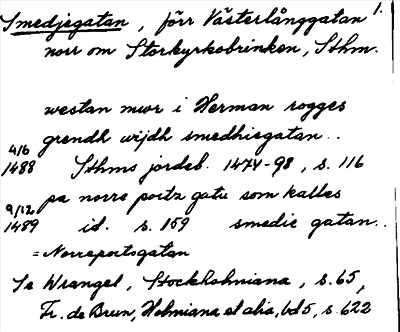 Smedjegatan, förr Västerlånggatan 1.
norr om Storkyrkobrinken, Sthm.
westan mwr i Herman rogges
grendh wijdh smedhiegatan..
4/6 1488 Sthms jordeb. 1474-98, s. 116
pa norre portz gatu som kalles
9/12 1489 id. s. 159 smedie gatan..
= Norreportsgatan
Se Wrangel, Stockholmiana, s. 65,
Fr. de Brun, Holmiana et alia, bd 5, s. 622